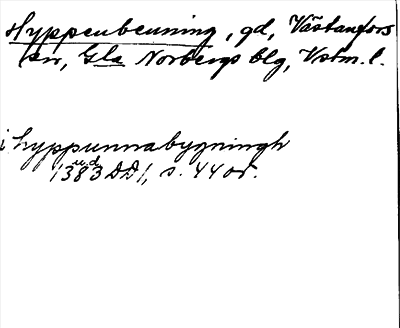 Hyppenbenning, gd, Västanfors
sn, Gla Norbergs blg, Vstm. l.
i hyppunnabygningh
u.d.
1383 DD1, s. 44 or.